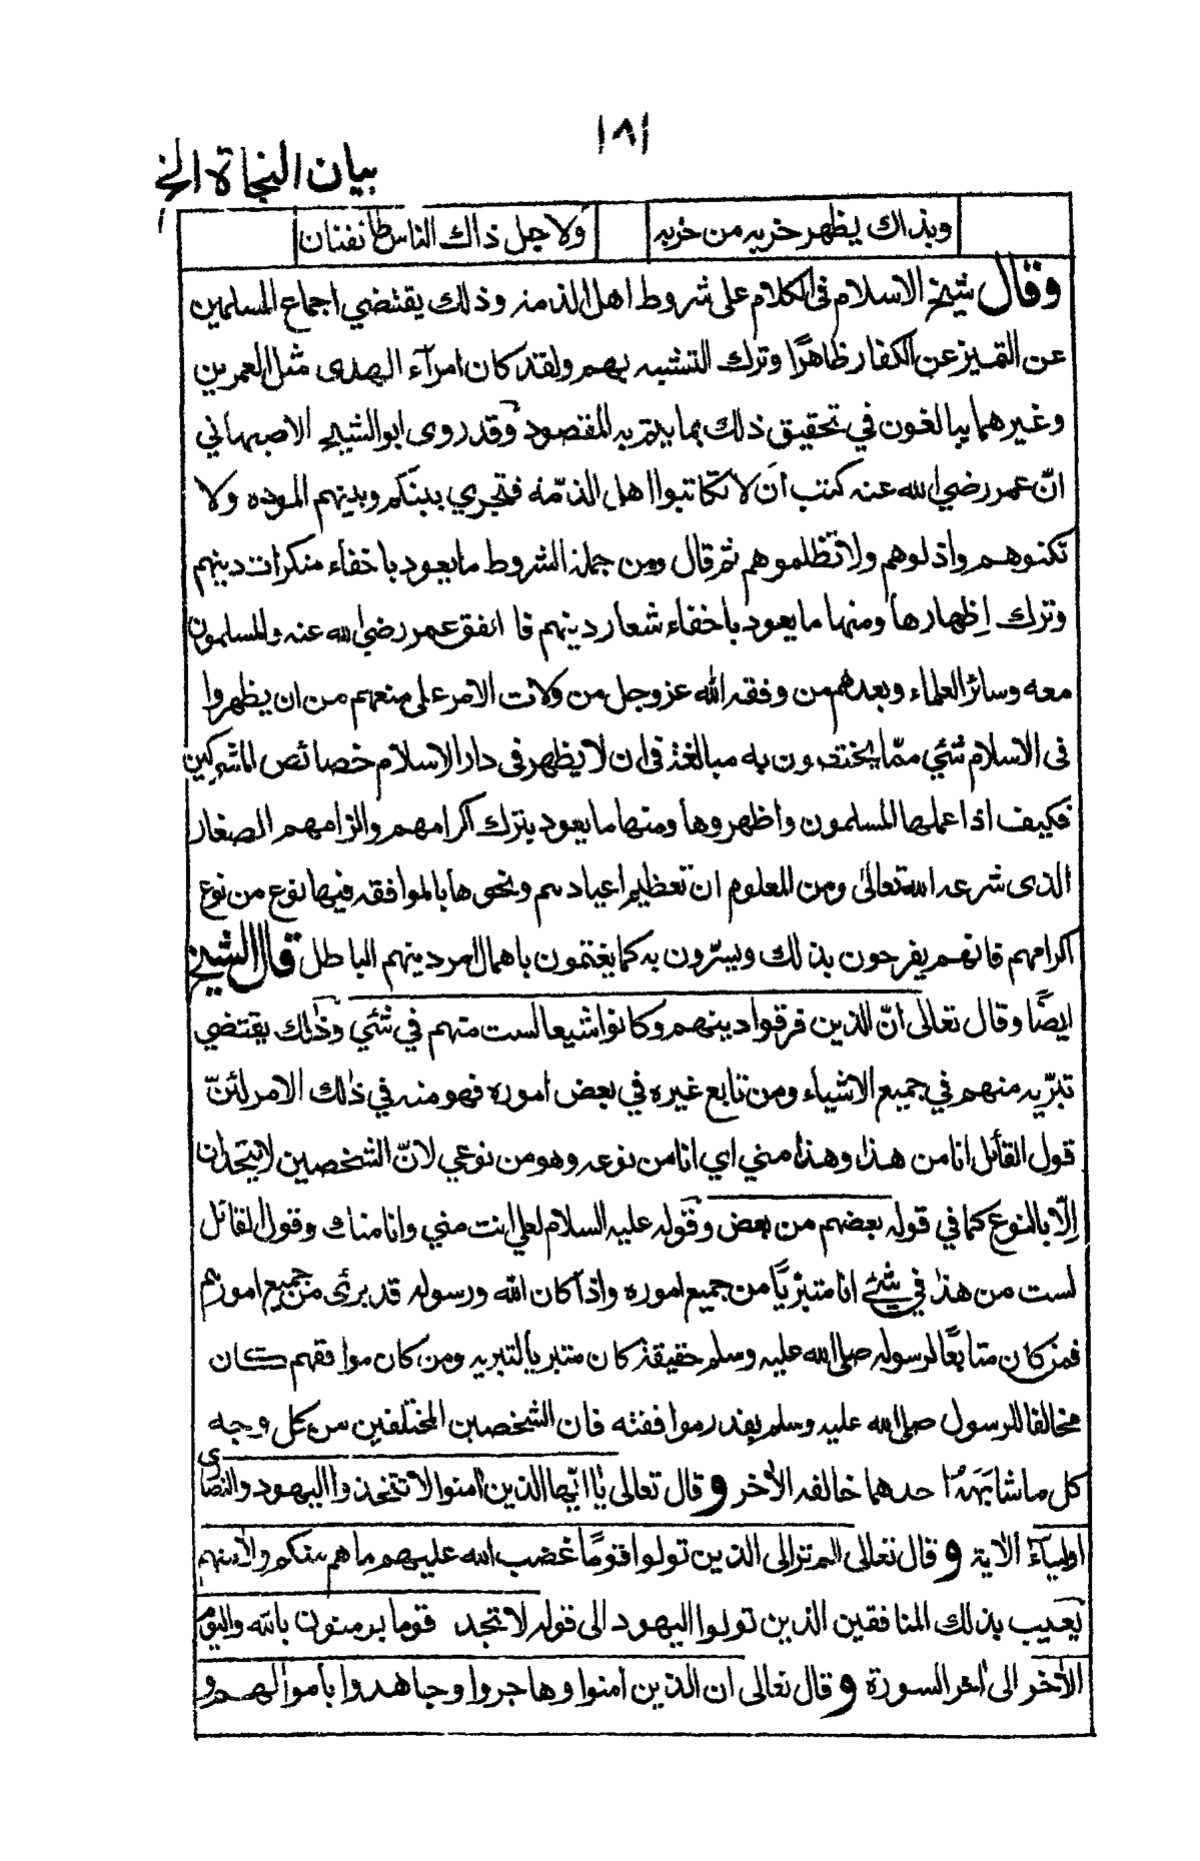 ١٨١
بيان النجاة الخ
وبذاك يظهر حزبه من حربه ولاجل ذاك الناس طائفتان
وقال شيخ الاسلام في الكلام على شروط اهل الذمة وذلك يقتضي اجماع المسلمين
عن التميز عن الكفار ظاهرًا وترك التشبه بهم ولقد كان امرآء الهدى مثل العمرين
وغيرهما يبالغون في تحقيق ذلك بما يتم به المقصود وقد روى ابو الشيخ الاصبهاني
انّ عمر رضي الله عنه كتب أن لا تكاتبوا اهل الذمّة فتجري بينكم وبينهم الموده ولا
تكنوهم واذلوهم ولا تظلموهم ثم قال ومن جملة الشروط ما يعود باخفاء منكرات دينهم
وترك إظهارها ومنها ما يعود باخفاء شعار دينهم فاتفق عمر رضي الله عنه والمسلمون
معه وسائر العلماء وبعدهم من وفقه الله عزوجل من ولات الامر على منعهم من ان يظهروا
في الاسلام شئي ممّا يختصون به مبالغة في ان لا يظهر في دار الاسلام خصائص المشركين
فكيف اذا عملها المسلمون وأظهروها ومنها ما يعود بترك اكرامهم والزامهم الصغار
الذى شرعه الله تعالى ومن المعلوم ان تعظيم اعيادهم ونحوها بالموافقه فيها نوع من نوع
اكرامهم فانهم يفرحون بذلك ويسّرون به كما يغتمون باهمال امر دينهم الباطل قال الشيخ
ايضًا وقال تعالى انّ الذين فرقوا دينهم وكانوا شيعا لست منهم في شئي وذلك يقتضي
تبرّيه منهم في جميع الاشياء ومن تابع غيره في بعض اموره فهو منه في ذلك الامر لئنّ
قول القائل انا من هذا وهذا مني اي انا من نوعه وهو من نوعي لانّ الشخصين لا يتحدان
إلّا بالنوع كما في قوله بعضهم من بعض وقوله عليه السلام لعلي انت مني وانا منك وقول القائل
لست من هذا في شئي انا متبرّيًا من جميع اموره واذا كان الله ورسوله قد برئ من جميع امورهم
فمن كان متابعًا لرسوله صلى الله عليه وسلم حقيقة كان متبريا لتبريه ومن كان موافقهم كان
مخالفا للرسول صلى الله عليه وسلم بقدر موافقته فان الشخصين المختلفين من كل وجه
كل ما شابهه احدهما خالفه الأخر و قال تعالى ياايّها الذين أمنوا لا تتخذوا اليهود والنصارى
اولياء ألاية و قال تعالى الم تر الى الذين تولوا قومًا غضب الله عليهم ما هم منكم ولا منهم
يعيب بذلك المنافقين الذين تولوا اليهود الى قوله لا تجد قوما يومنون بالله واليوم
الأخر الى أخر السورة و قال تعالى ان الذين أمنوا وهاجروا وجاهدوا بأموالهم و